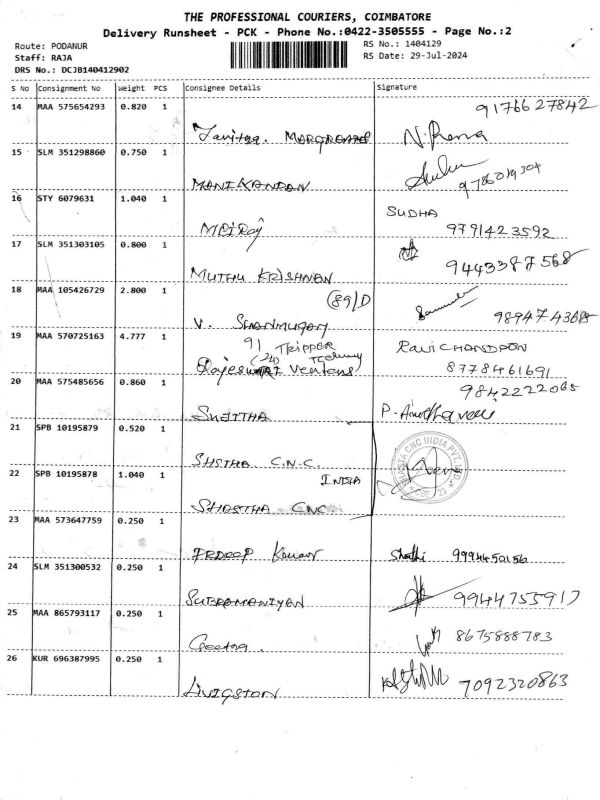 THE PROFESSIONAL COURIERS, COIMBATORE
Delivery Runsheet - PCK - Phone No.:0422-3505555 - Page No.:2
Route: PODANUR
RS No.: 1404129
Staff: RAJA
RS Date: 29-Jul-2024
DRS No.: DCJB140412902
S No Consignment No Weight PCS Consignee Details Signature
14 MAA 575654293 0.820 1 9176627842
15 SLM 351298860 0.750 1 MANIKANDAN 9786019304
16 STY 6079631 1.040 1 SUDHA
9791423592
17 SLM 351303105 0.800 1 MUTHU KRISHNAN 9443387568
18 MAA 105426729 2.800 1 (89/D
V. SHANMUGAM
19 MAA 570725163 4.777 1 91 TRIPPER RAVICHANDRAN
8778461691
20 MAA 575485656 0.860 1 SUJITHA 9842222065
21 SPB 10195879 0.520 1 SHSTHA C.N.C.
INDIA
22 SPB 10195878 1.040 1 SHASTHA CNC
SHASTA CNC INDIA PVT. LTD.
CBE 23
23 MAA 573647759 0.250 1 PRDEEP Kumar Shathi 9994450156
24 SLM 351300532 0.250 1 SUBRAMANIYAN 9944755917
25 MAA 865793117 0.250 1 Geetha. 8675888783
26 KUR 696387995 0.250 1 LIVIGSTON 7092320863